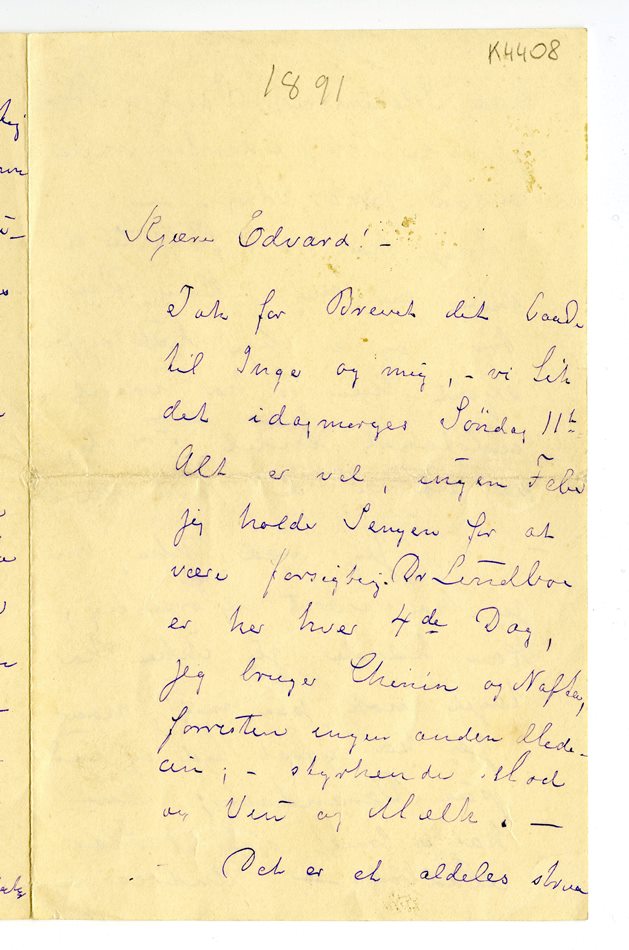 K4408
1891
Kjære Edvard! –
Tak for Brevet dit baade
til Inge og mig, – vi fik
det idagmorges Söndag 11te
Alt er vel, ingen Feber
jeg holde Sengen for at
være forsigtig. Dr
er her hver 4de Dag,
jeg bruger Chinin og Nafta,
forresten ingen anden Mede-
cin; – styrkende Mad
og Vin og Mælk. –
Det er et aldeles